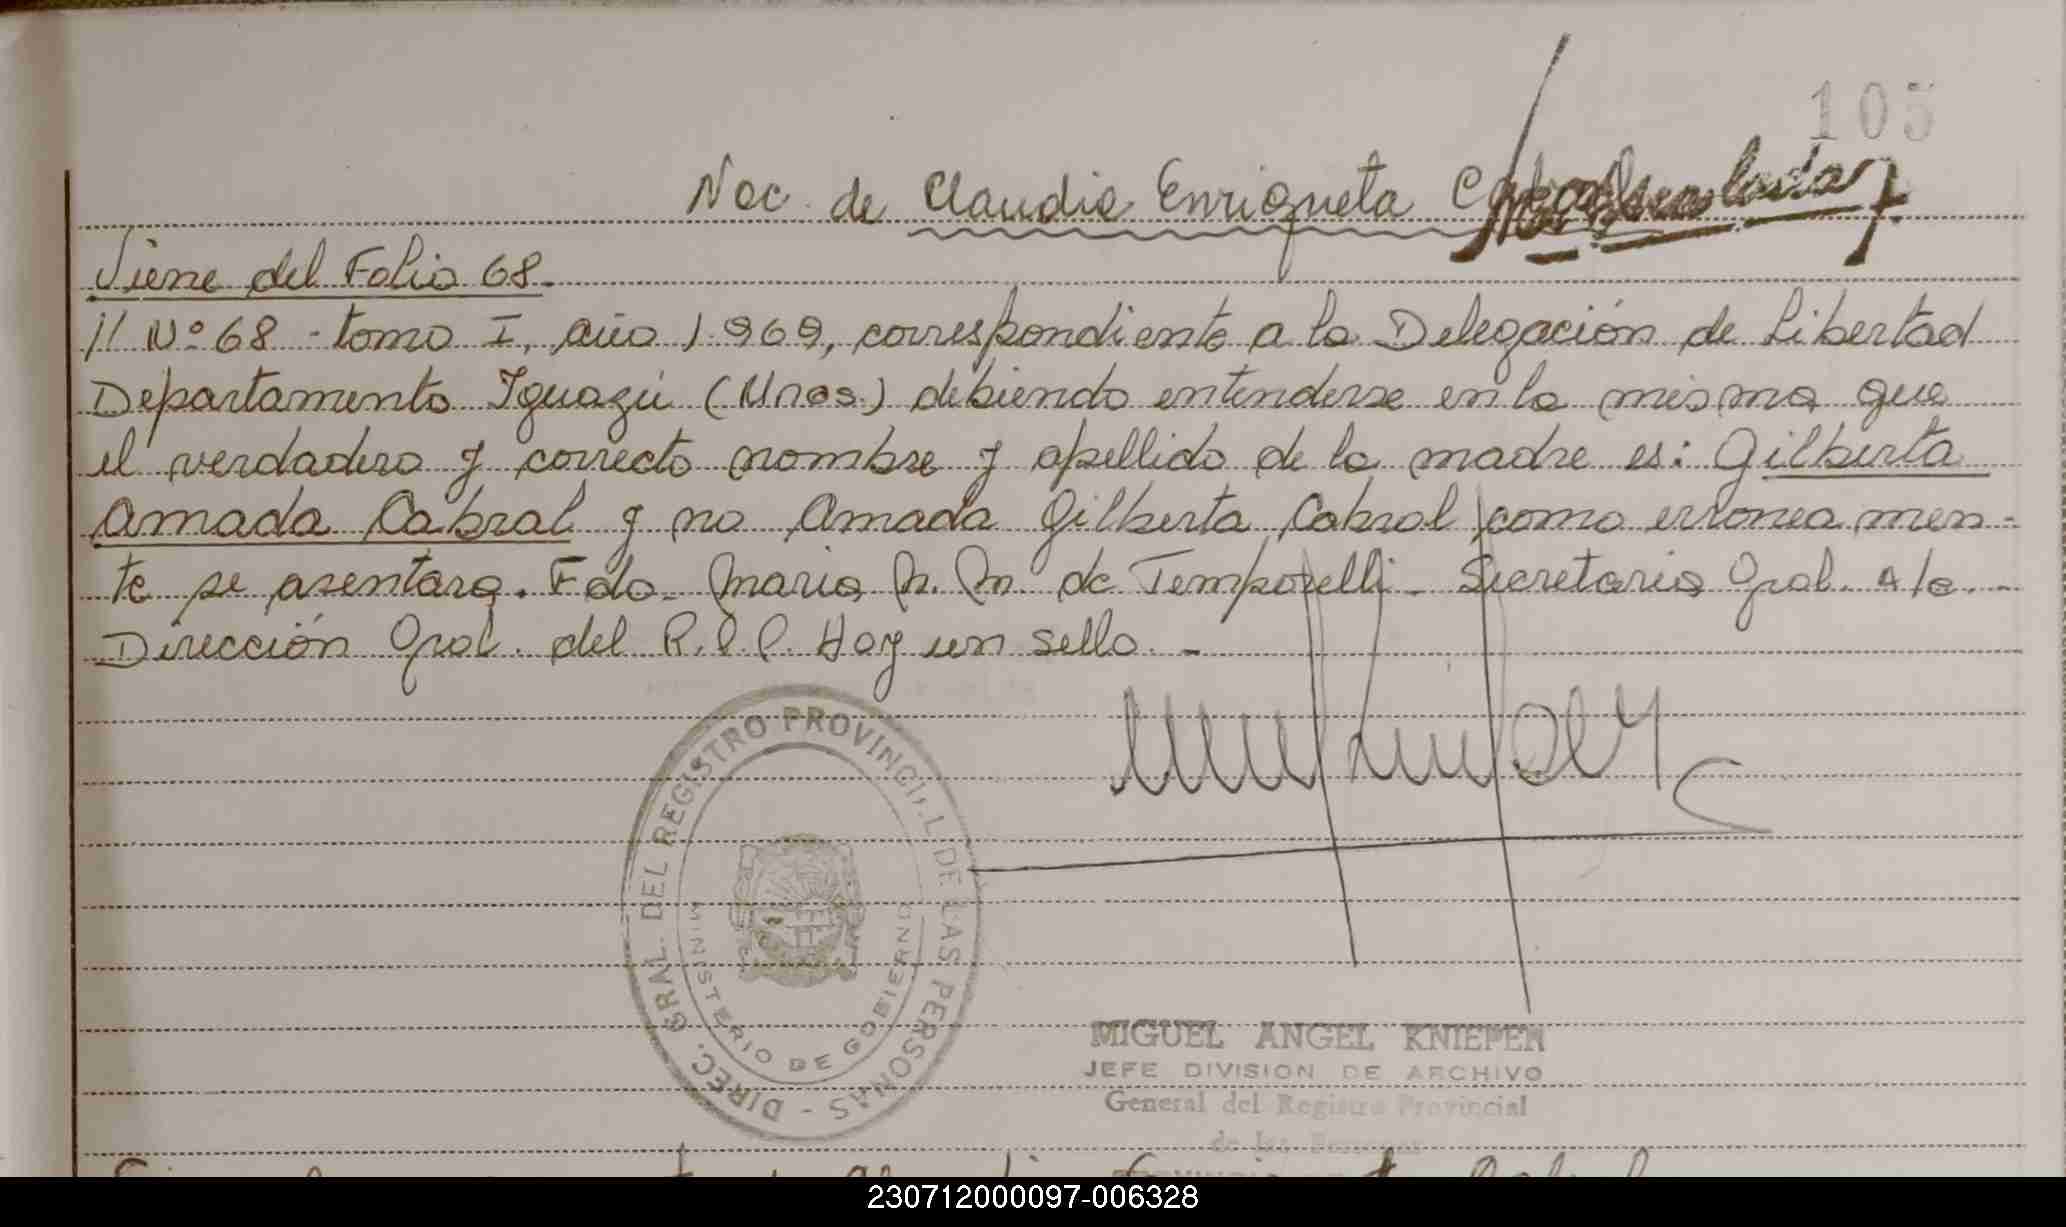 105
Nac. de Claudia Enriqueta
Viene del Folio 68.
// Nº 68 - tomo I, año 1.969, correspondiente a la Delegación de Libertad
Departamento Iguazú (Mnes.) debiendo entenderse en la misma que
el verdadero y correcto nombre y apellido de la madre es: Gilberta
Amada Cabral y no Amada Gilberta Cabral como erronea men-
te se asentara. Fdo. Maria N. M. de Temporelli - Secretaria Gral. A/c. -
Dirección Gral. del R.P.P. Hay un sello. -
DIREC. GRAL. DEL REGISTRO PROVINCIAL DE LAS PERSONAS -
MINISTERIO DE GOBIERNO
MIGUEL ANGEL KNIEPEN
JEFE DIVISION DE ARCHIVO
General del Registro Provincial
de las Personas
230712000097-006328